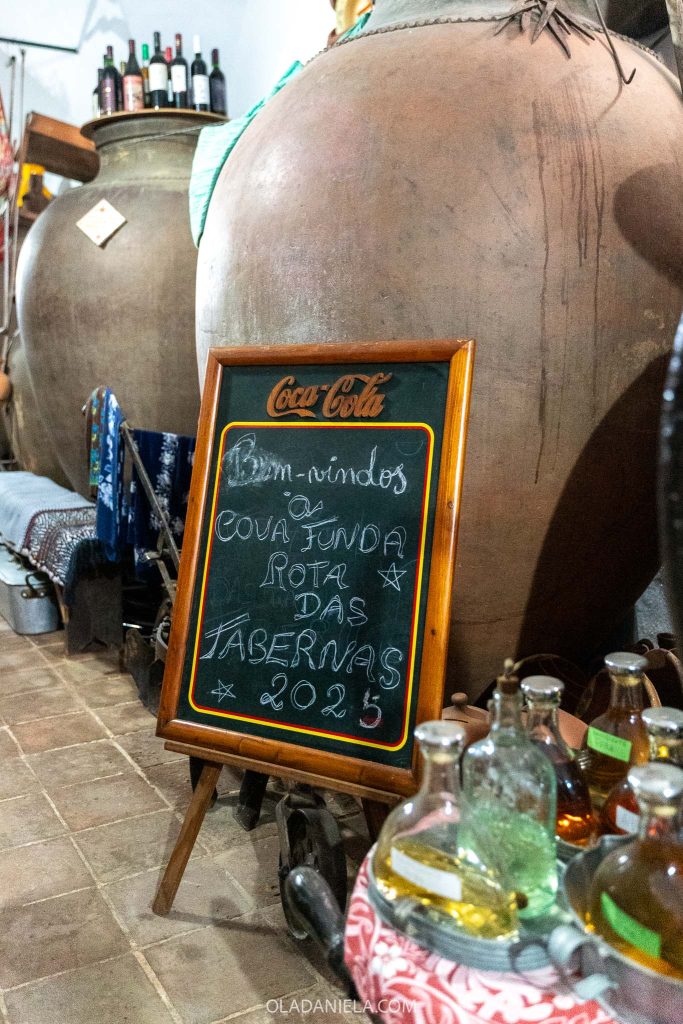 Coca-Cola
Bem-vindos
à
COVA FUNDA
ROTA
DAS
TABERNAS
2025
OLADANIELA.COM